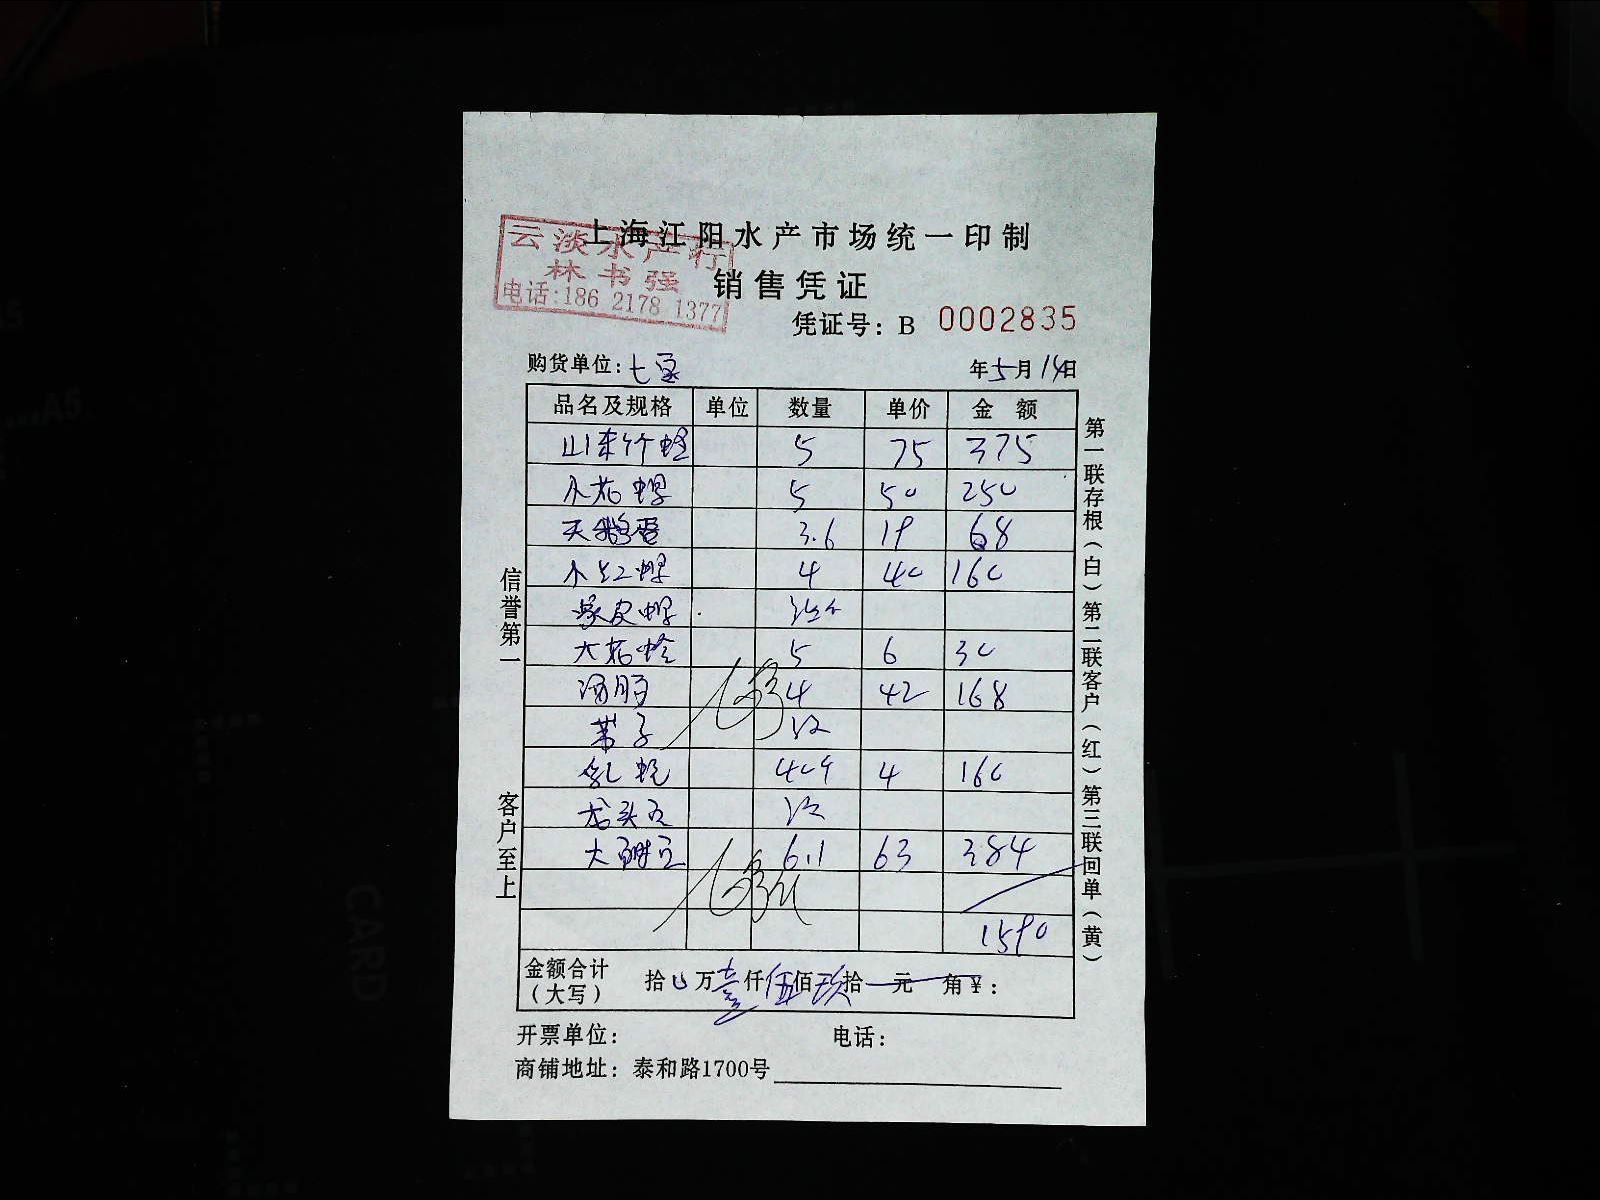 上海江阳水产市场统一印制
云淡水产行
林书强
电话:186 2178 1377
销售凭证
凭证号: B 0002835
购货单位: 七
年5月14日
品名及规格 单位 数量 单价 金额
山东竹蛏 5 75 375
小花螺 5 50 250
天鹅蛋 3.6 19 68
小红螺 4 40 160
象皮螺
大花蛤 5 6 30
4 42 168
带子 没
4 160
龙头 没
大 6.1 63 384
1590
金额合计 (大写) 拾 万壹仟伍佰玖拾 元 角 ¥:
开票单位: 电话:
商铺地址: 泰和路1700号
信誉第一
客户至上
第一联存根(白)第二联客户(红)第三联回单(黄)